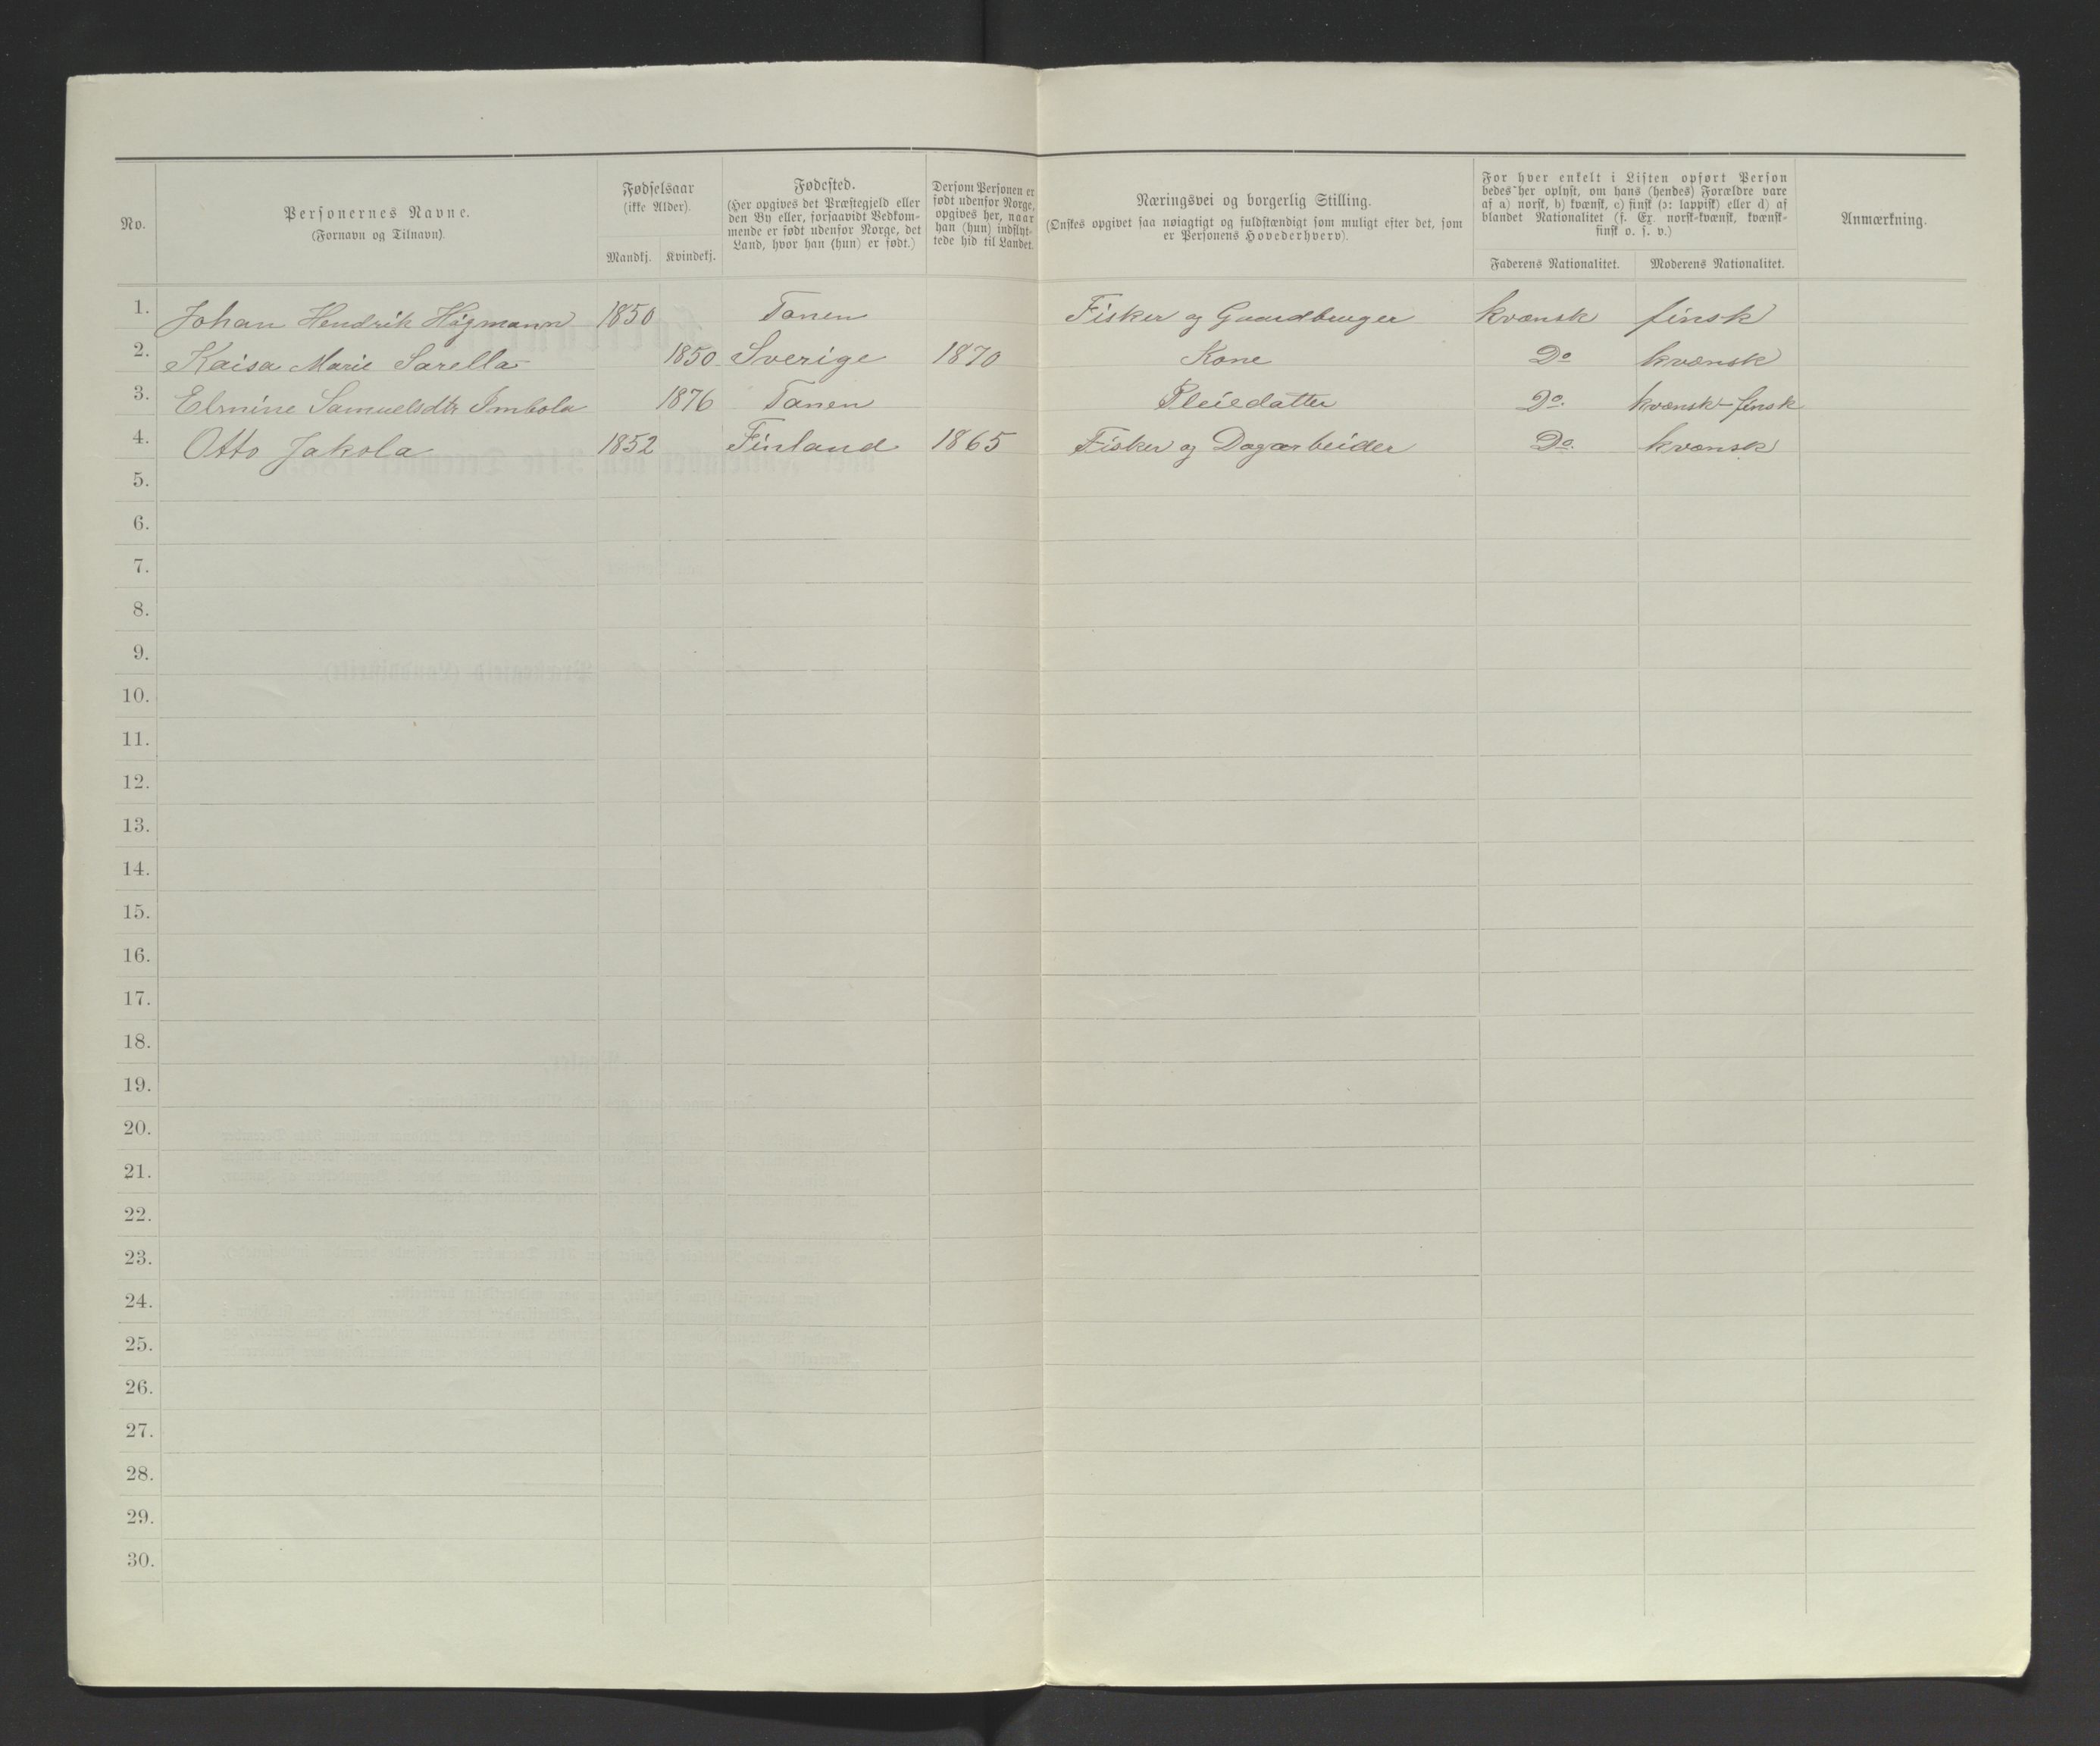 No.
Personernes Navne.
(Fornavn og Tilnavn).
Fødselsaar
(ikke Alder).
Mandkj. Kvindekj.
Fødested.
(Her opgives det Præstegjeld eller
den By eller, forsaavidt Vedkom-
mende er født udenfor Norge, det
Land, hvor han (hun) er født.)
Dersom Personen er
født udenfor Norge,
opgives her, naar
han (hun) indflyt-
tede hid til Landet.
Næringsvei og borgerlig Stilling.
(Ønskes opgivet saa nøiagtigt og fuldstændigt som muligt efter det, som
er Personens Hovederhverv).
For hver enkelt i Listen opført Person
bedes her oplyst, om hans (hendes) Forældre vare
af a) norsk, b) kvænsk, c) finsk (ɔ: lappisk) eller d) af
blandet Nationalitet (s. Ex. norsk-kvænsk, kvænsk-
finsk o. s. v.)
Faderens Nationalitet. Moderens Nationalitet.
Anmærkning.
1. Johan Hendrik Høgmann 1850 Tanen Fisker og Gaardbruger kvænsk finsk
2. Kaisa Marie Sarella 1850 Sverige 1870 Kone Do kvænsk
3. Elmine Samuelsdtr Imbola 1876 Tanen Pleiedatter Do. kvænsk-finsk
4. Otto Jakola 1852 Finland 1865 Fisker og Dagarbeider Do. kvænsk
5.
6.
7.
8.
9.
10.
11.
12.
13.
14.
15.
16.
17.
18.
19.
20.
21.
22.
23.
24.
25.
26.
27.
28.
29.
30.